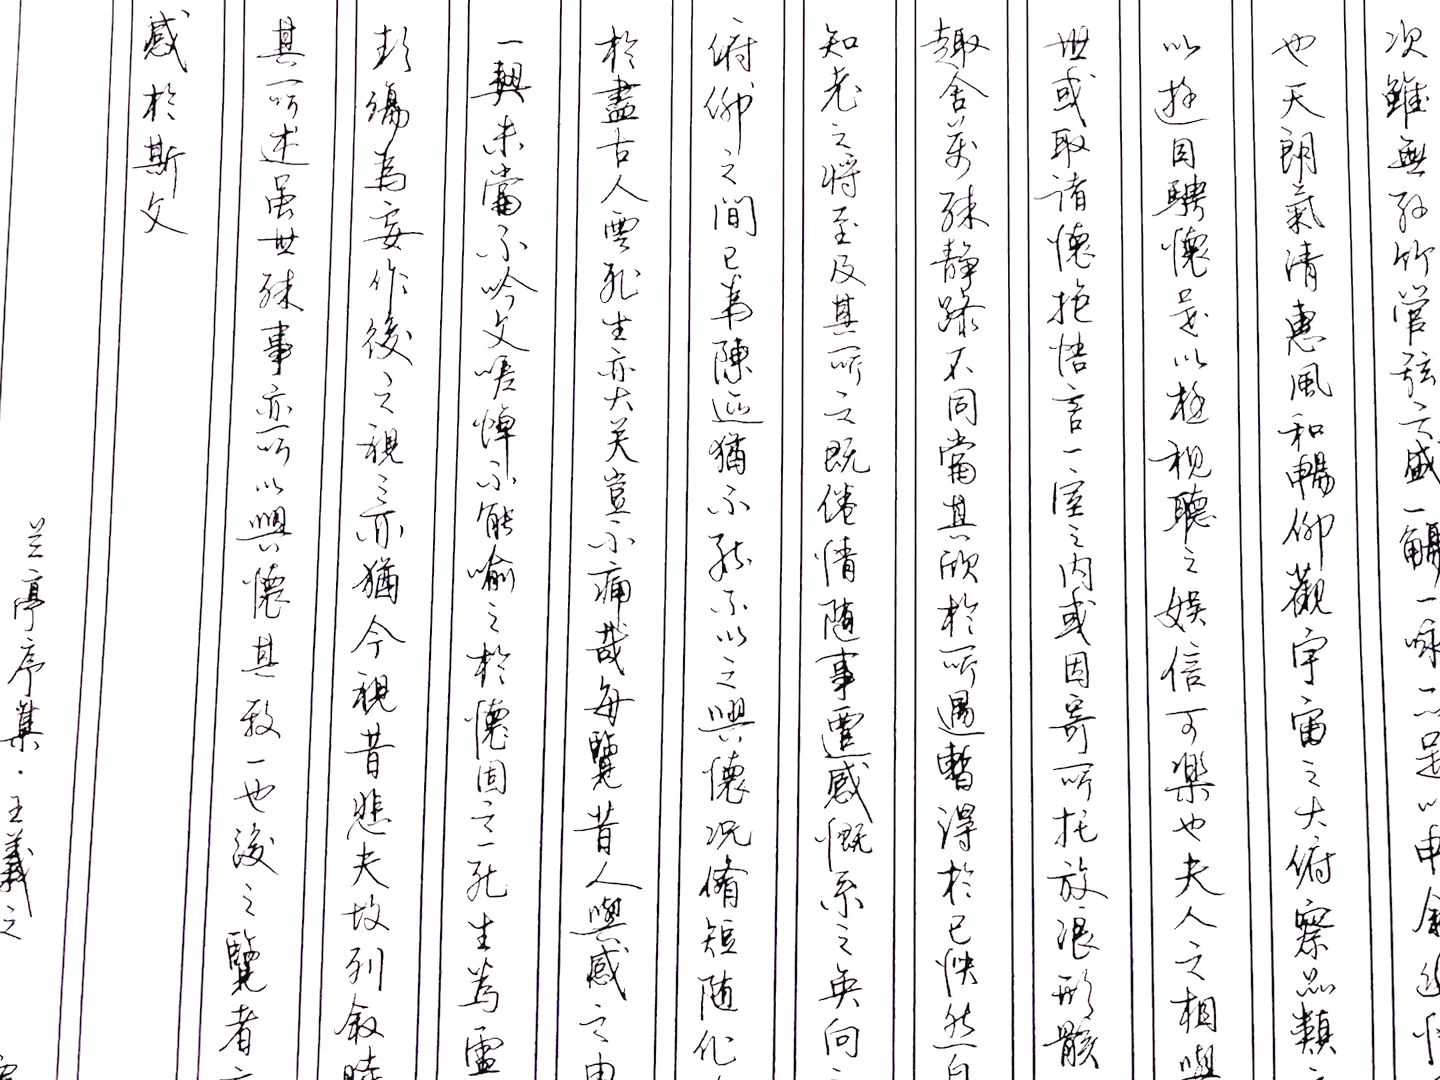 次雖無絲竹管弦之盛一觴一詠亦足以申叙
也天朗氣清惠風和暢仰觀宇宙之大俯察品類之
以遊目騁懷是以極視聽之娛信可樂也夫人之相與
世或取諸懷抱悟言一室之内或因寄所托放浪形骸
趣舍萬殊靜躁不同當其欣於所遇暫得於己怏然自
知老之將至及其所之既倦情随事遷感慨系之矣向之
俯仰之間已為陳迹猶不能不以之興懷况脩短随化
於盡古人雲死生亦大矣豈不痛哉每覽昔人興感之由
一契未嘗不吟文嗟悼不能喻之於懷固知一死生為虛
彭殤為妄作後之視今亦猶今視昔悲夫故列叙時
其所述虽世殊事亦所以興懷其致一也後之覽者亦
感於斯文
兰亭序集·王羲之